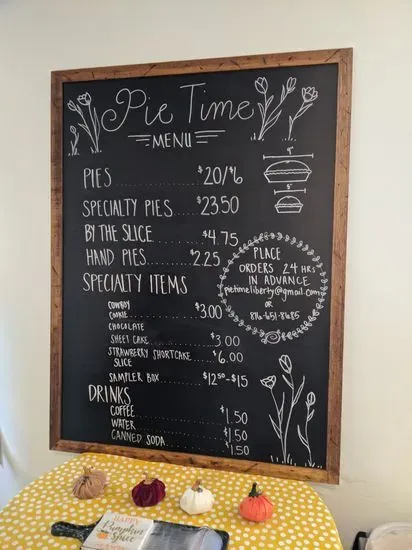 Pie Time
MENU
9"
PIES $20/$6
5"
SPECIALTY PIES $23.50
BY THE SLICE $4.75
HAND PIES $2.25
SPECIALTY ITEMS
PLACE
ORDERS 24 HRS
IN ADVANCE
pietimeliberty@gmail.com
OR
816-651-8685
COWBOY
COOKIE $3.00
CHOCOLATE
SHEET CAKE $3.00
STRAWBERRY SHORTCAKE
SLICE $6.00
SAMPLER BOX $12.50-$15
DRINKS
COFFEE $1.50
WATER $1.50
CANNED SODA $1.50
HAPPY
Pumpkin
Spice